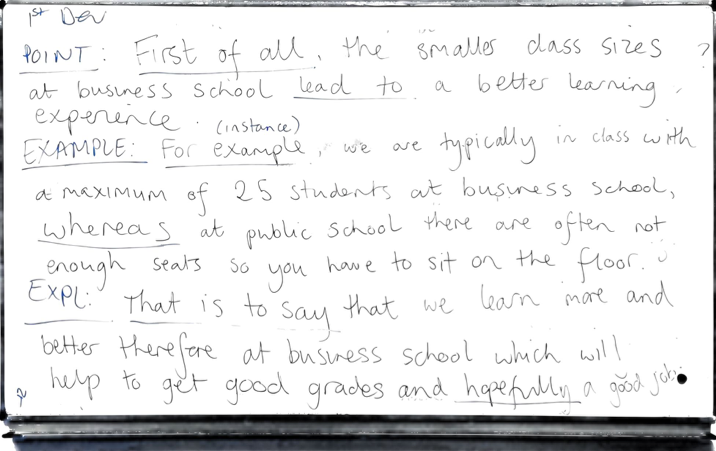 1st Dev
POINT: First of all, the smaller class sizes ?
at business school lead to a better learning
experience. (instance)
EXAMPLE: For example, we are typically in class with
a maximum of 25 students at business school,
whereas at public school there are often not
enough seats so you have to sit on the floor.
EXPL: That is to say that we learn more and
better therefore at business school which will
help to get good grades and hopefully a good job.